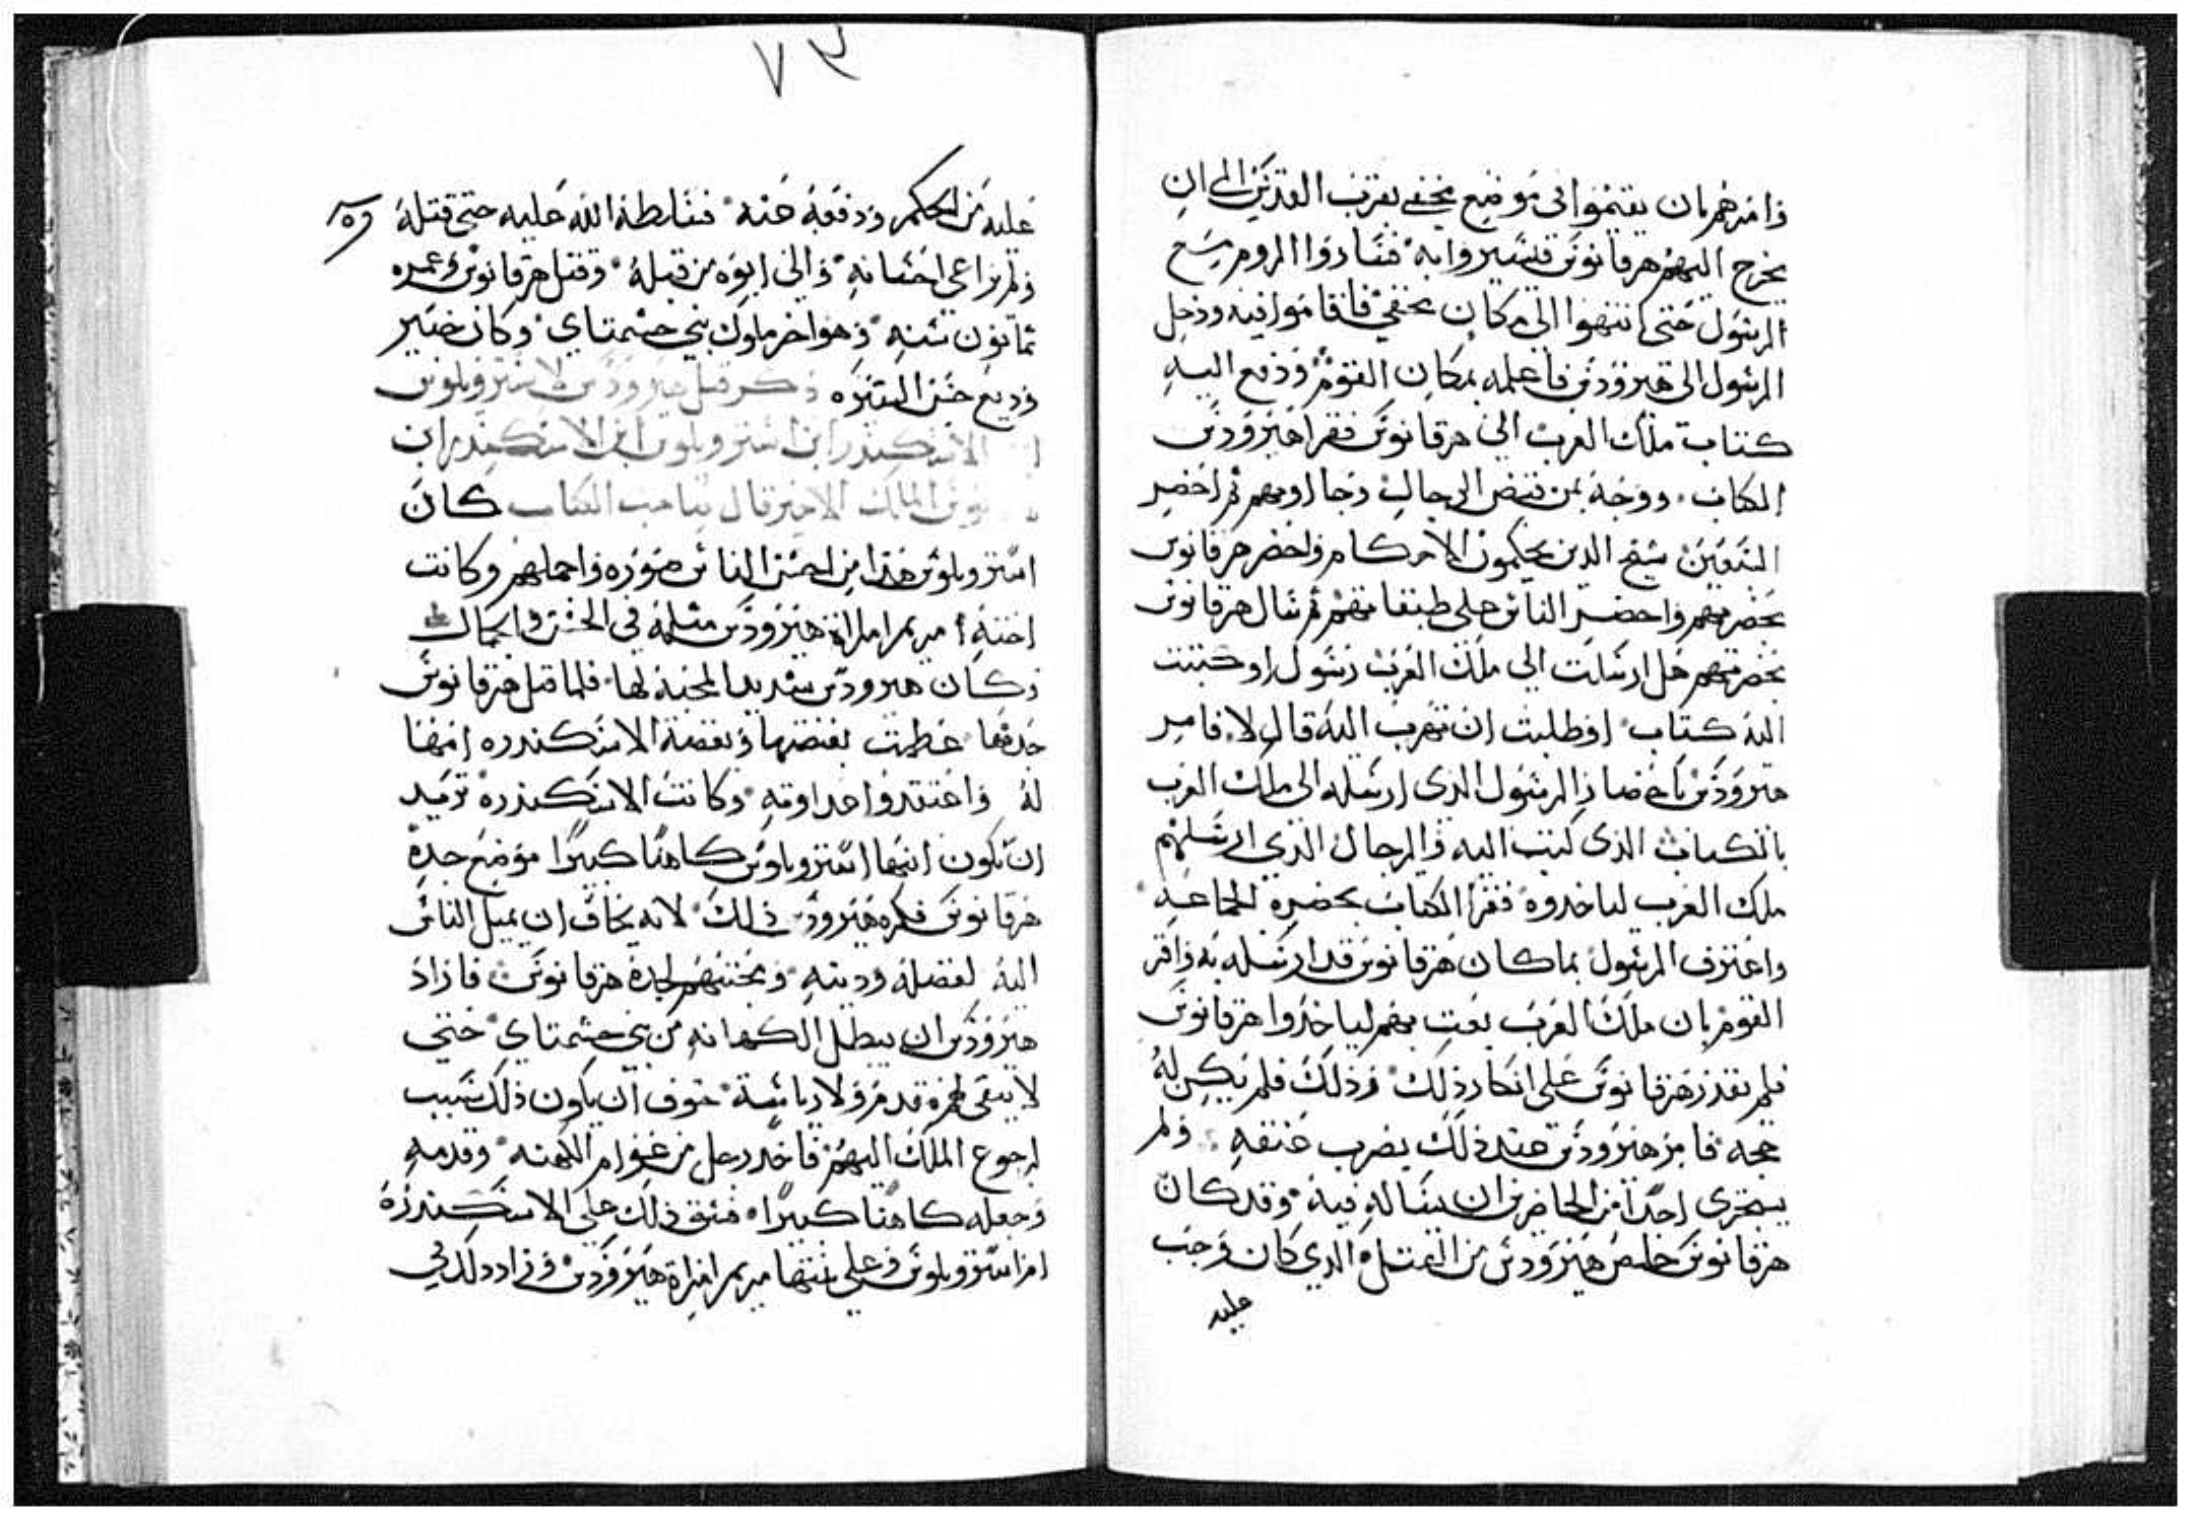 وامرهم بان يقيموا في موضع مخفي بقرب القدس الى ان
يخرج اليهم هرقانوس فيسيروا به فساروا الروم مع
الرسول حتى انتهوا الى مكان مخفي فاقاموا فيه ودخل
الرسول الى هيرودس فاعلمه بمكان القوم ودفع اليه
كتاب ملك العرب الى هرقانوس فقرا هيرودس
الكتاب ووجه بمن قبض الرجال وجاوا بهم ثم احضر
السبعين شيخ الذين يحكمون الاحكام واحضر هرقانوس
بحضرتهم واحضر الناس على طبقاتهم ثم سال هرقانوس
بحضرتهم هل ارسلت الى ملك العرب رسول او كتبت
اليه كتاب او طلبت ان تهرب اليه قال لا فامر
هيرودس باحضار الرسول الذي ارسله الى ملك العرب
بالكتاب الذي كتب اليه والرجال الذي ارسلهم
ملك العرب لياخدوه فقرا الكتاب بحضرة الجماعه
واعترف الرسول بما كان هرقانوس قد ارسله به واقر
القوم بان ملك العرب بعت بهم لياخدوا هرقانوس
فلم يقدر هرقانوس على انكار ذلك فلم يكن له
حجه فامر هيرودس عند ذلك بضرب عنقه ولم
يتجرى احدا من الحاضرين ان يساله فيه وقد كان
هرقانوس خلص هيرودس من القتل الدي كان وجب
عليه
٧٣
عليه من الحكم ودفعه عنه فسلطه الله عليه حتى قتله
ولم يراعي احسانه والى ابوه من قبله وقتل هرقانوس وعمره
تمانون سنه وهو اخر ملوك بني حشمناي وكان خير
وديع حسن السيره ذكر قتل هيرودس لاستروبلوس
الاسكندر ابن استروبلوس ابن الاسكندر ابن
الملك الاخير قال صاحب الكتاب كان
استروبلوس هذا من احسن الناس صوره واجملهم وكانت
اخته مريم امراة هيرودس مثله في الحسن والجمال
وكان هيرودس شديد المحبة لها فلما قتل هرقانوس
جدهما عظمت بغضتها وبغضة الاسكندره امها
له واعتقدوا عداوته وكانت الاسكندره تريد
ان يكون ابنها استروبلوس كاهنا كبيرا موضع جده
هرقانوس فكره هيرودس ذلك لانه يخاف ان يميل الناس
اليه لفضله ودينه ومحبتهم لجده هرقانوس فاراد
هيرودس ان يبطل الكهانه من بني حشمناي حتى
لا يبقى لهم قدم ولا رياسة خوف ان يكون ذلك سبب
لرجوع الملك اليهم فاخد رجل من عوام الكهنه وقدمه
وجعله كاهنا كبيرا فشق ذلك على الاسكندره
ام استروبلوس وعلى بنتها مريم امراة هيرودس وزاد دلك في